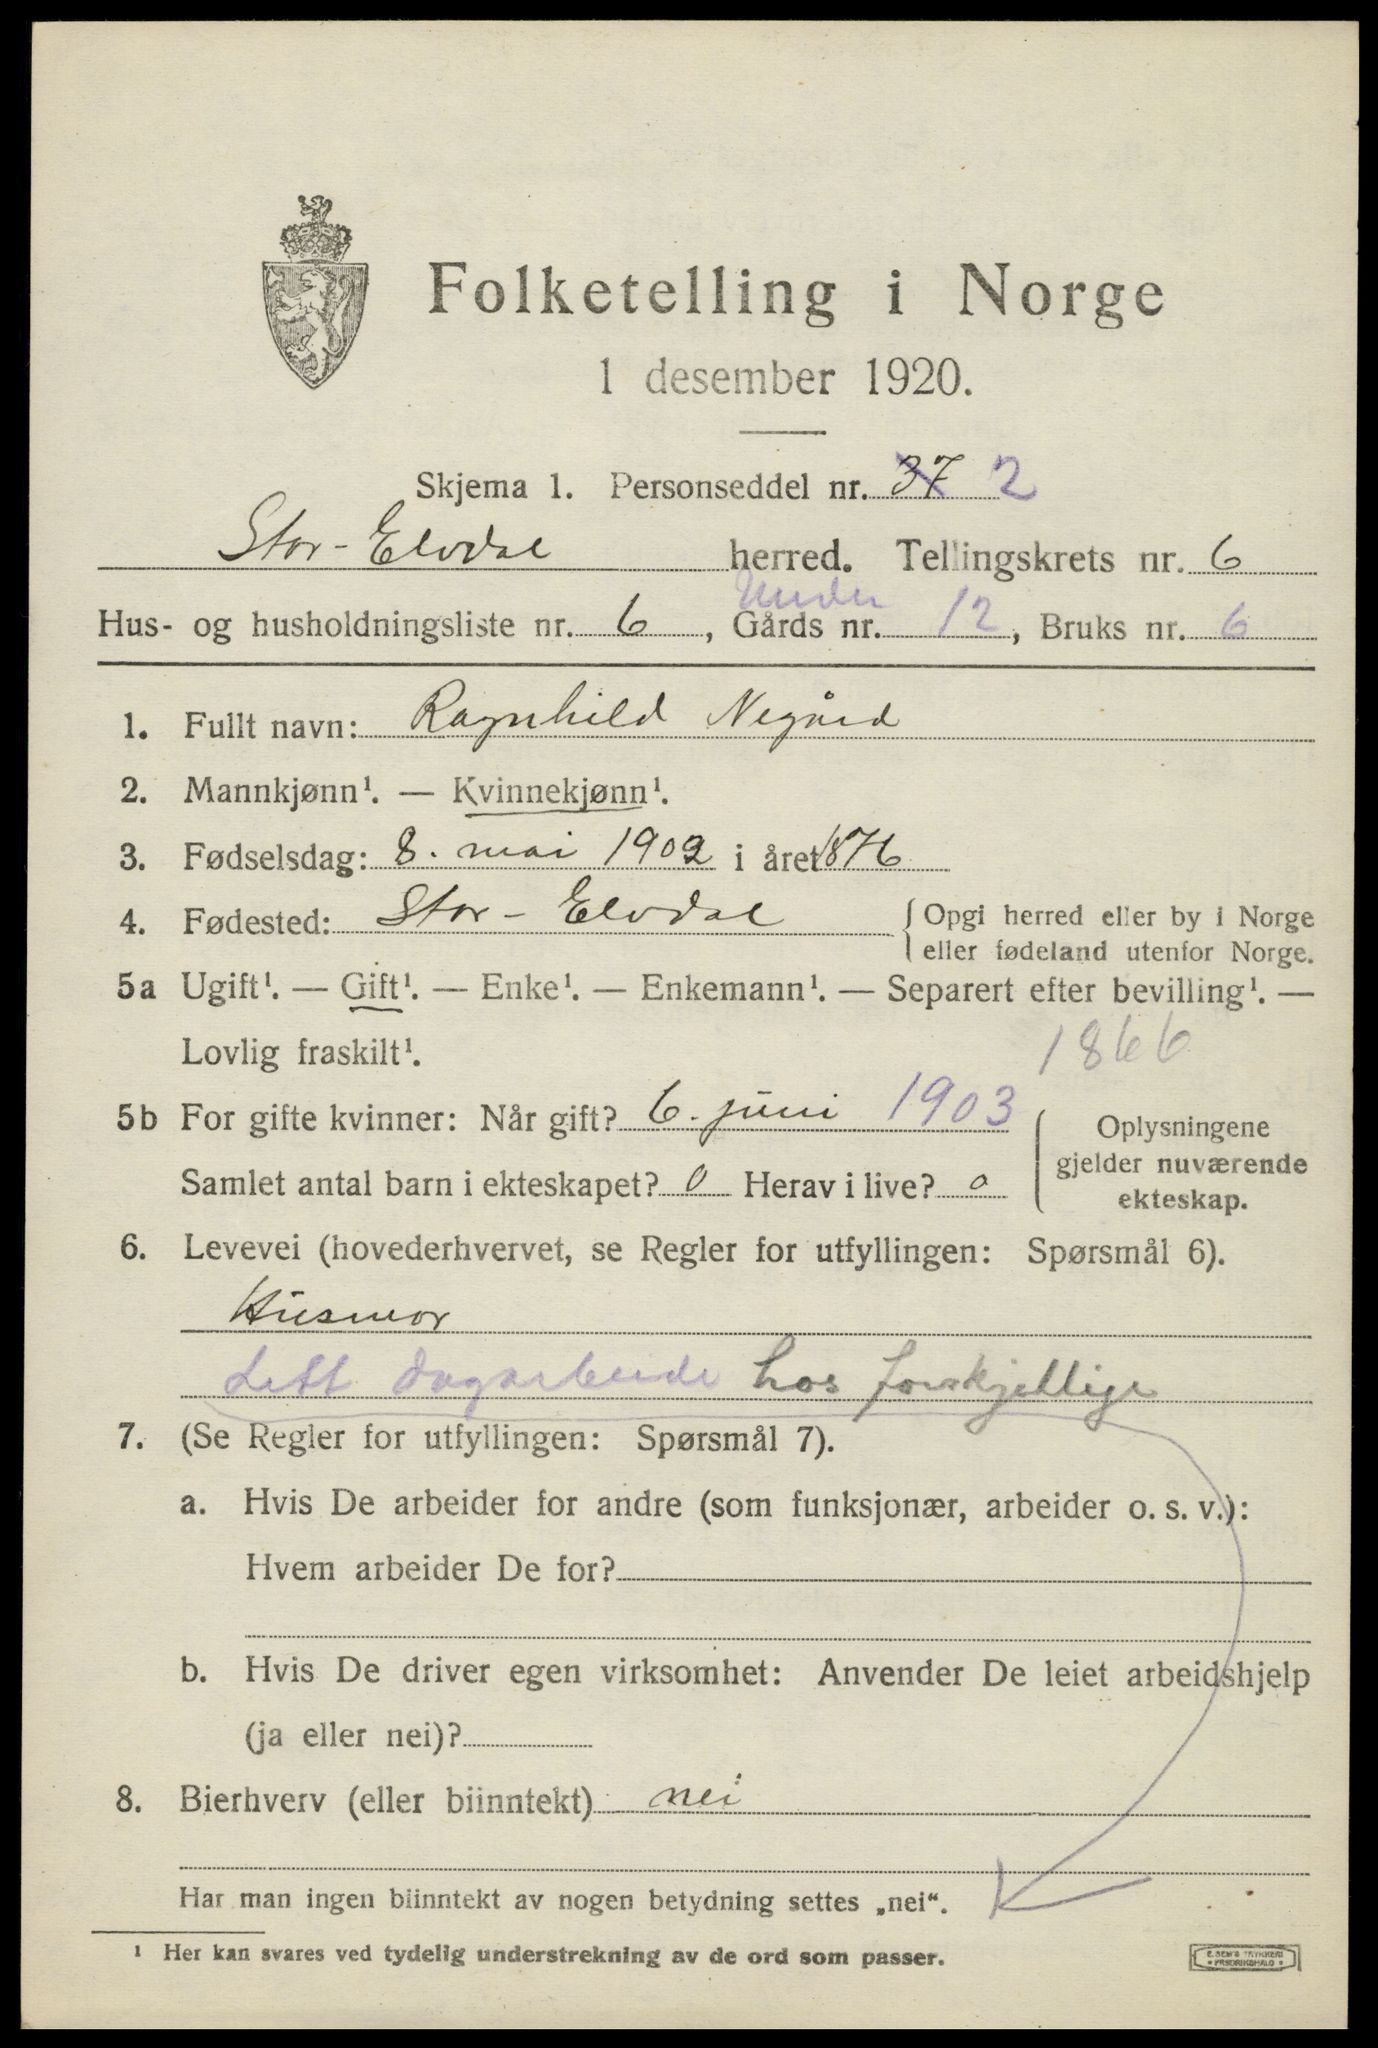 Folketelling i Norge
1 desember 1920.
Skjema 1. Personseddel nr. 37 2
Stor-Elvdal herred. Tellingskrets nr. 6
Under
Hus- og husholdningsliste nr. 6, Gårds nr. 12, Bruks nr. 6
1. Fullt navn: Ragnhild Negård
2. Mannkjønn¹. — Kvinnekjønn¹.
3. Fødselsdag: 8. mai 1902 i året 1876
4. Fødested: Stor-Elvdal { Opgi herred eller by i Norge
eller fødeland utenfor Norge.
5a Ugift¹. — Gift¹. — Enke¹. — Enkemann¹. — Separert efter bevilling¹. —
Lovlig fraskilt¹.
1866
5b For gifte kvinner: Når gift? 6. juni 1903
Samlet antal barn i ekteskapet? 0 Herav i live? 0
Oplysningene
gjelder nuværende
ekteskap.
6. Levevei (hovederhvervet, se Regler for utfyllingen: Spørsmål 6).
Husmor
Lett dagarbeide hos forskjellige
7. (Se Regler for utfyllingen: Spørsmål 7).
a. Hvis De arbeider for andre (som funksjonær, arbeider o. s. v.):
Hvem arbeider De for?
b. Hvis De driver egen virksomhet: Anvender De leiet arbeidshjelp
(ja eller nei)?
8. Bierhverv (eller biinntekt) nei
Har man ingen biinntekt av nogen betydning settes „nei“.
¹ Her kan svares ved tydelig understrekning av de ord som passer.
E. SEM'S TRYKKERI
• FREDRIKSHALD •